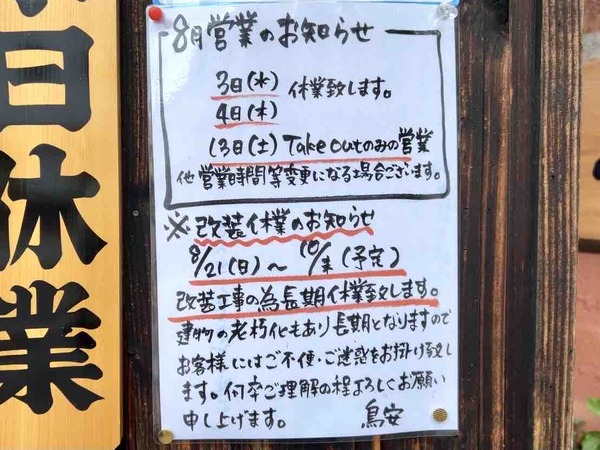 日休業
8月営業のお知らせ
3日(水)
4日(木)
休業致します。
13日(土) Take outのみの営業
他営業時間等変更になる場合ございます。
※改装休業のお知らせ
8/21(日)〜10/末(予定)
改装工事の為長期休業致します。
建物の老朽化もあり長期となりますので
お客様にはご不便・ご迷惑をお掛け致し
ます。何卒ご理解の程よろしくお願い
申し上げます。 鳥安